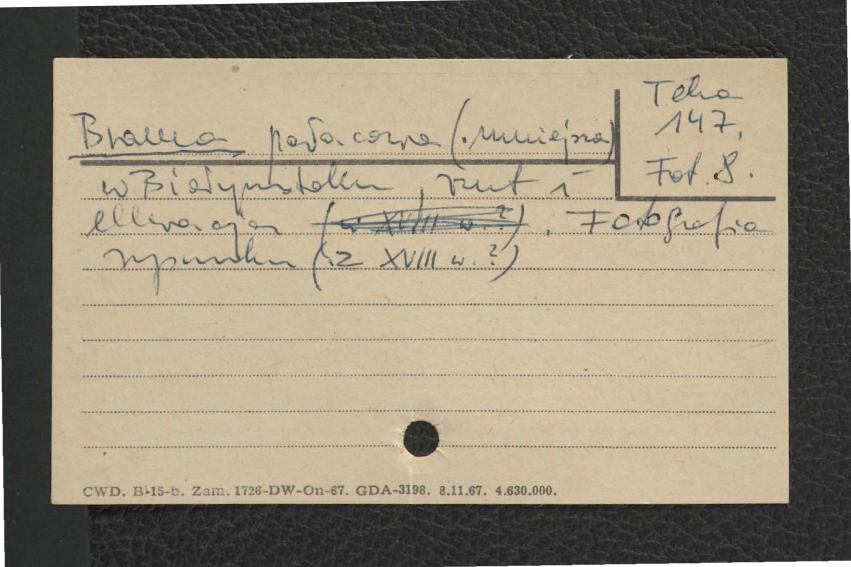 Teka
147.
Fot. 8.
Bramka pałacowa (mniejsza)
w Białymstoku, rzut i
elewacja (w XVIII w.?). Fotografia
rysunku (z XVIII w.?)
CWD. B-15-b. Zam. 1726-DW-On-67. GDA-3198. 8.11.67. 4.630.000.